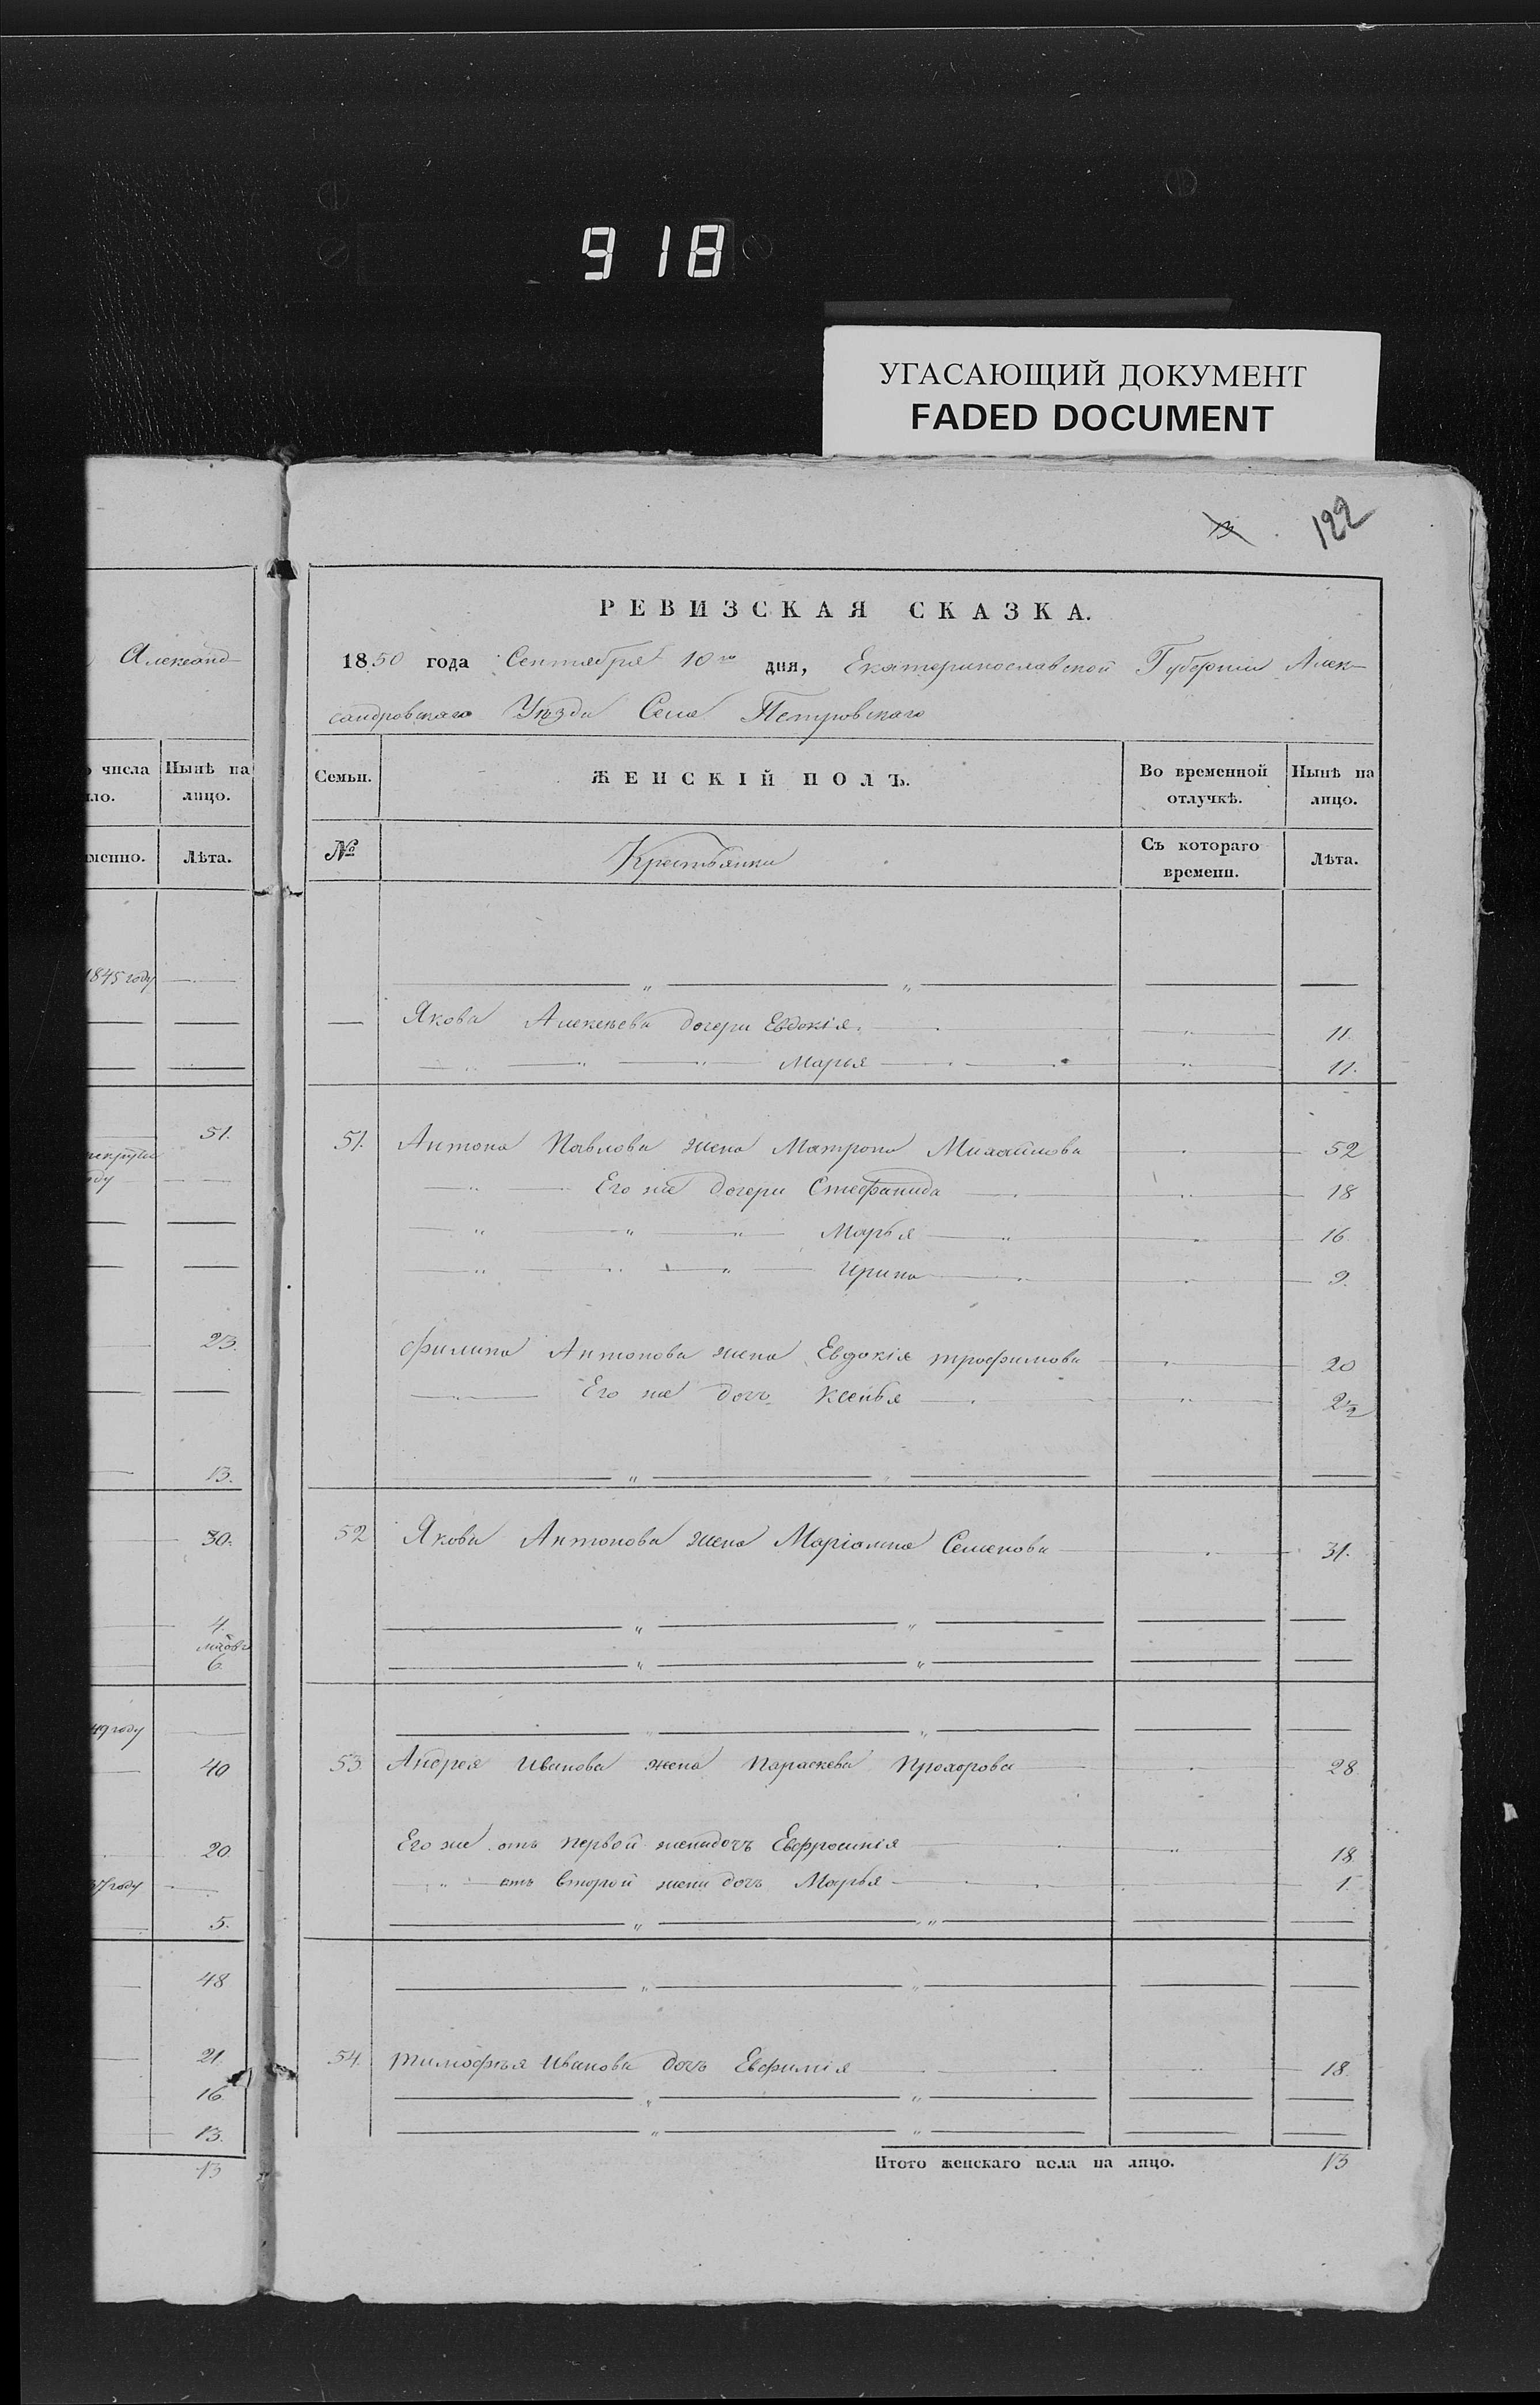 918
УГАСАЮЩИЙ ДОКУМЕНТ
FADED DOCUMENT
13
122
Александ-
числа
Нынѣ на
лицо.
Лѣта.
1845 году
51.
23.
13.
30.
4.
6
49 году
40
20.
37 году
5.
48
21.
16
13.
13
РЕВИЗСКАЯ СКАЗКА.
1850 года Сентября 10го дня, Екатеринославской Губернии Алек-
сандровскаго Уѣзда Села Петровскаго
Семьи.
ЖЕНСКІЙ ПОЛЪ.
Во временной
отлучкѣ.
Нынѣ на
лицо.
№
Крестьянки
Съ котораго
времени.
Лѣта.
Якова Алексѣева дочери Евдокія 11.
" " " Марья " 11.
51. Антона Павлова жена Матрона Михайлова " 52
" Его же дочери Стефанида " 18
" " " Марья " 16
" " " Ирина " 9.
Филипа Антонова жена Евдокія Трофимова " 20
" Его же дочь Ксенья " 2½
52 Якова Антонова жена Маріамна Семенова " 31.
53. Андрея Иванова жена Параскева Прохорова " 28
Его же отъ первой жени дочъ Евфросинія " 18
" отъ второй жени дочъ Марья " 1.
54. Тимофѣя Иванова дочь Евфимія " 18.
Итого женскаго пола на лицо. 13